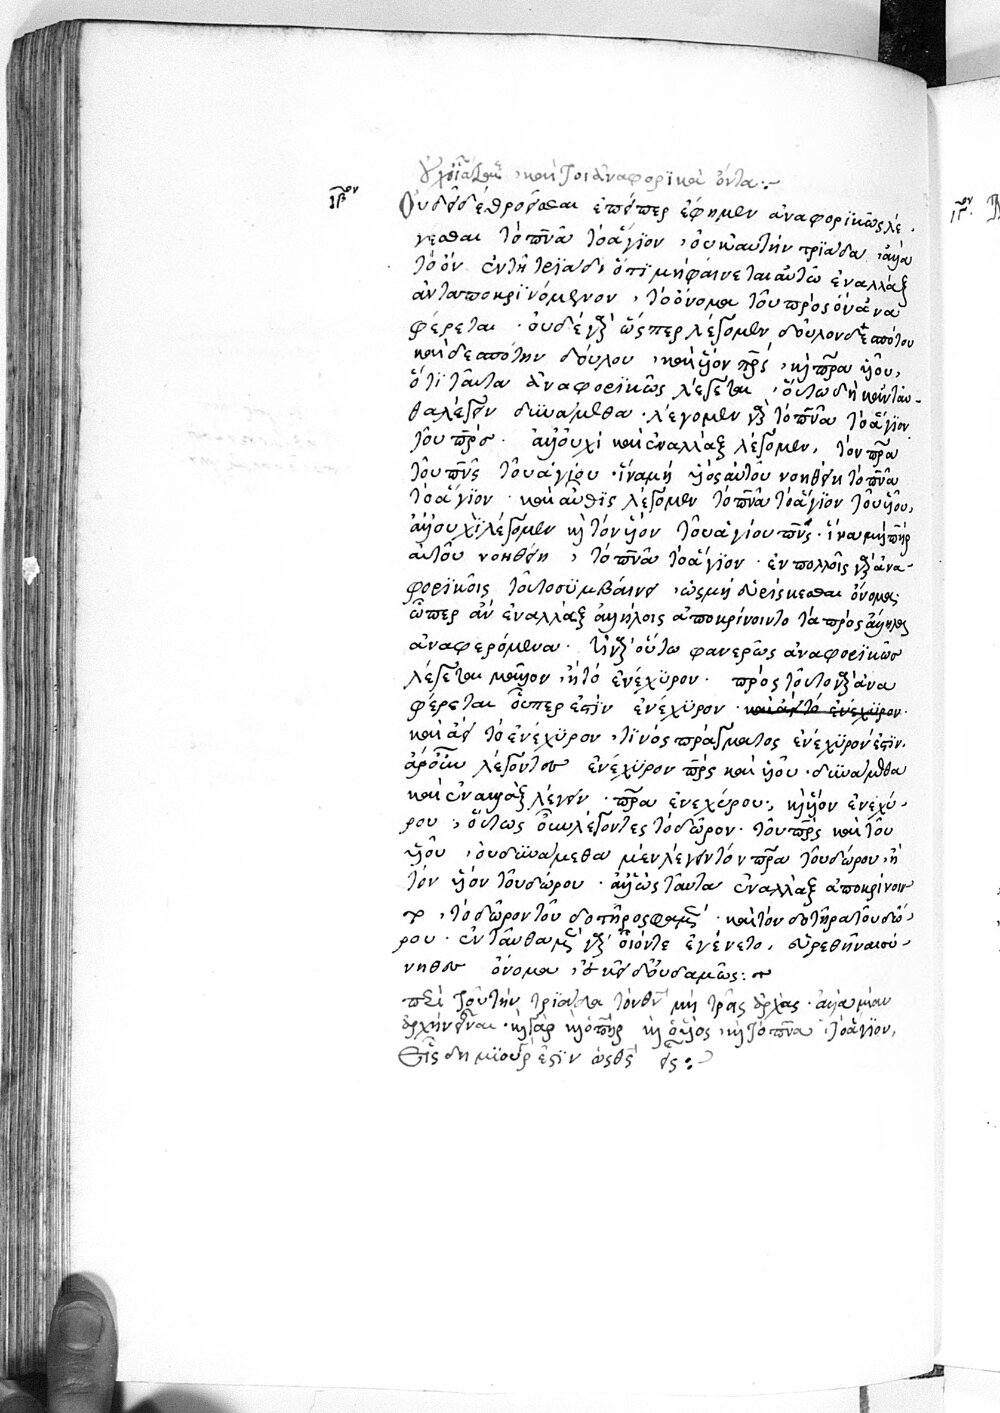 καὶ τοι ἀναφορικὰ ὄντα:~
ιβον
Οὐ δεῖ δὲ θροεῖσθαι ἐπείπερ ἔφημεν ἀναφορικῶς λέ-
γεσθαι τὸ πν̅α τὸ ἅγιον, οὐ κατὰ τὴν τριάδα, ἀλλὰ
τὸ ὂν ἐν τῇ τριάδι ὅτι μὴ φαίνεται αὐτῶ ἐναλλὰξ
ἀνταποκρινόμενον, τὸ ὄνομα τοῦ πρὸς ὃ ἀνα
φέρεται. οὐδὲ γὰρ ὥσπερ λέγομεν δοῦλον δεσπότου
καὶ δεσπότην δούλου, καὶ υἱὸν πρ̅ς, κ πρ̅α υἱοῦ,
ὅτι ταῦτα ἀναφορικῶς λέγεται, οὕτω δὴ κἀνταῦ-
θα λέγειν δυνάμεθα. λέγομεν γὰρ τὸ πν̅α τὸ ἅγιον
τοῦ πρ̅ς. ἀλλ' οὐχὶ καὶ ἐναλλὰξ λέγομεν, τὸν πρ̅α
τοῦ πν̅ς τοῦ ἁγίου. ἵνα μὴ υἱὸς αὐτοῦ νοηθείη τὸ πν̅α
τὸ ἅγιον. καὶ αὖθις λέγομεν τὸ πν̅α τὸ ἅγιον τοῦ υἱοῦ,
ἀλλ' οὐχὶ λέγομεν κ τὸν υἱὸν τοῦ ἁγίου πν̅ς. ἵνα μὴ πη̅ρ
αὐτοῦ νοηθείη, τὸ πν̅α τὸ ἅγιον. ἐν πολλοῖς γὰρ ἀνα-
φορικοῖς τοῦτο συμβαίνει, ὡς μὴ εὑρίσκεσθαι ὄνομα.
ὧπερ ἂν ἐναλλὰξ ἀλλήλοις ἀποκρίνοιντο τὰ πρὸς ἄλληλα
ἀναφερόμενα. τί γὰρ οὕτω φανερῶς ἀναφορικῶς
λέγεται μᾶλλον, ἢ τὸ ἐνέχυρον. πρὸς τοῦτο γὰρ ἀνα
φέρεται οὗπερ ἐστὶν ἐνέχυρον. καὶ ἀεὶ τὸ ἐνέχυρον.
καὶ ἀεὶ τὸ ἐνέχυρον, τινὸς πράγματος ἐνέχυρον ἐστιν.
ἆρ' οὖν λέγοντες ἐνέχυρον πρ̅ς καὶ υἱοῦ. δυνάμεθα
καὶ ἐναλλὰξ λέγειν. πρ̅α ἐνεχύρου, κ υἱὸν ἐνεχύ-
ρου, οὕτως οὖν λέγοντες τὸ δῶρον. τοῦ πρ̅ς καὶ τοῦ
υἱοῦ, οὐ δυνάμεθα μὲν λέγειν τὸν πρ̅α τοῦ δώρου, ἢ
τὸν υἱὸν τοῦ δώρου. ἀλλ' ὡς ταῦτα ἐναλλὰξ ἀποκρίνοιν
το, τὸ δῶρον τοῦ δοτῆρος φαμὲν. καὶ τὸν δοτῆρα τοῦ δώ-
ρου. ἐνταῦθα μὲν γὰρ οἷόν τε ἐγένετο, εὑρεθῆναι σύ-
νηθες ὄνομα, ἐκεῖ δ' οὐδαμῶς:~
περὶ τοῦ τὴν τριάδα τὸν θν̅ μὴ τρεῖς ἀρχὰς. ἀλλὰ μίαν
ἀρχὴν εἶναι. κ γὰρ κ ὁ πη̅ρ κ ὁ υἱὸς, κ τὸ πν̅α τὸ ἅγιον,
εἷς δημιουρ ἐστὶν ὡς θς̅ εἷς:~